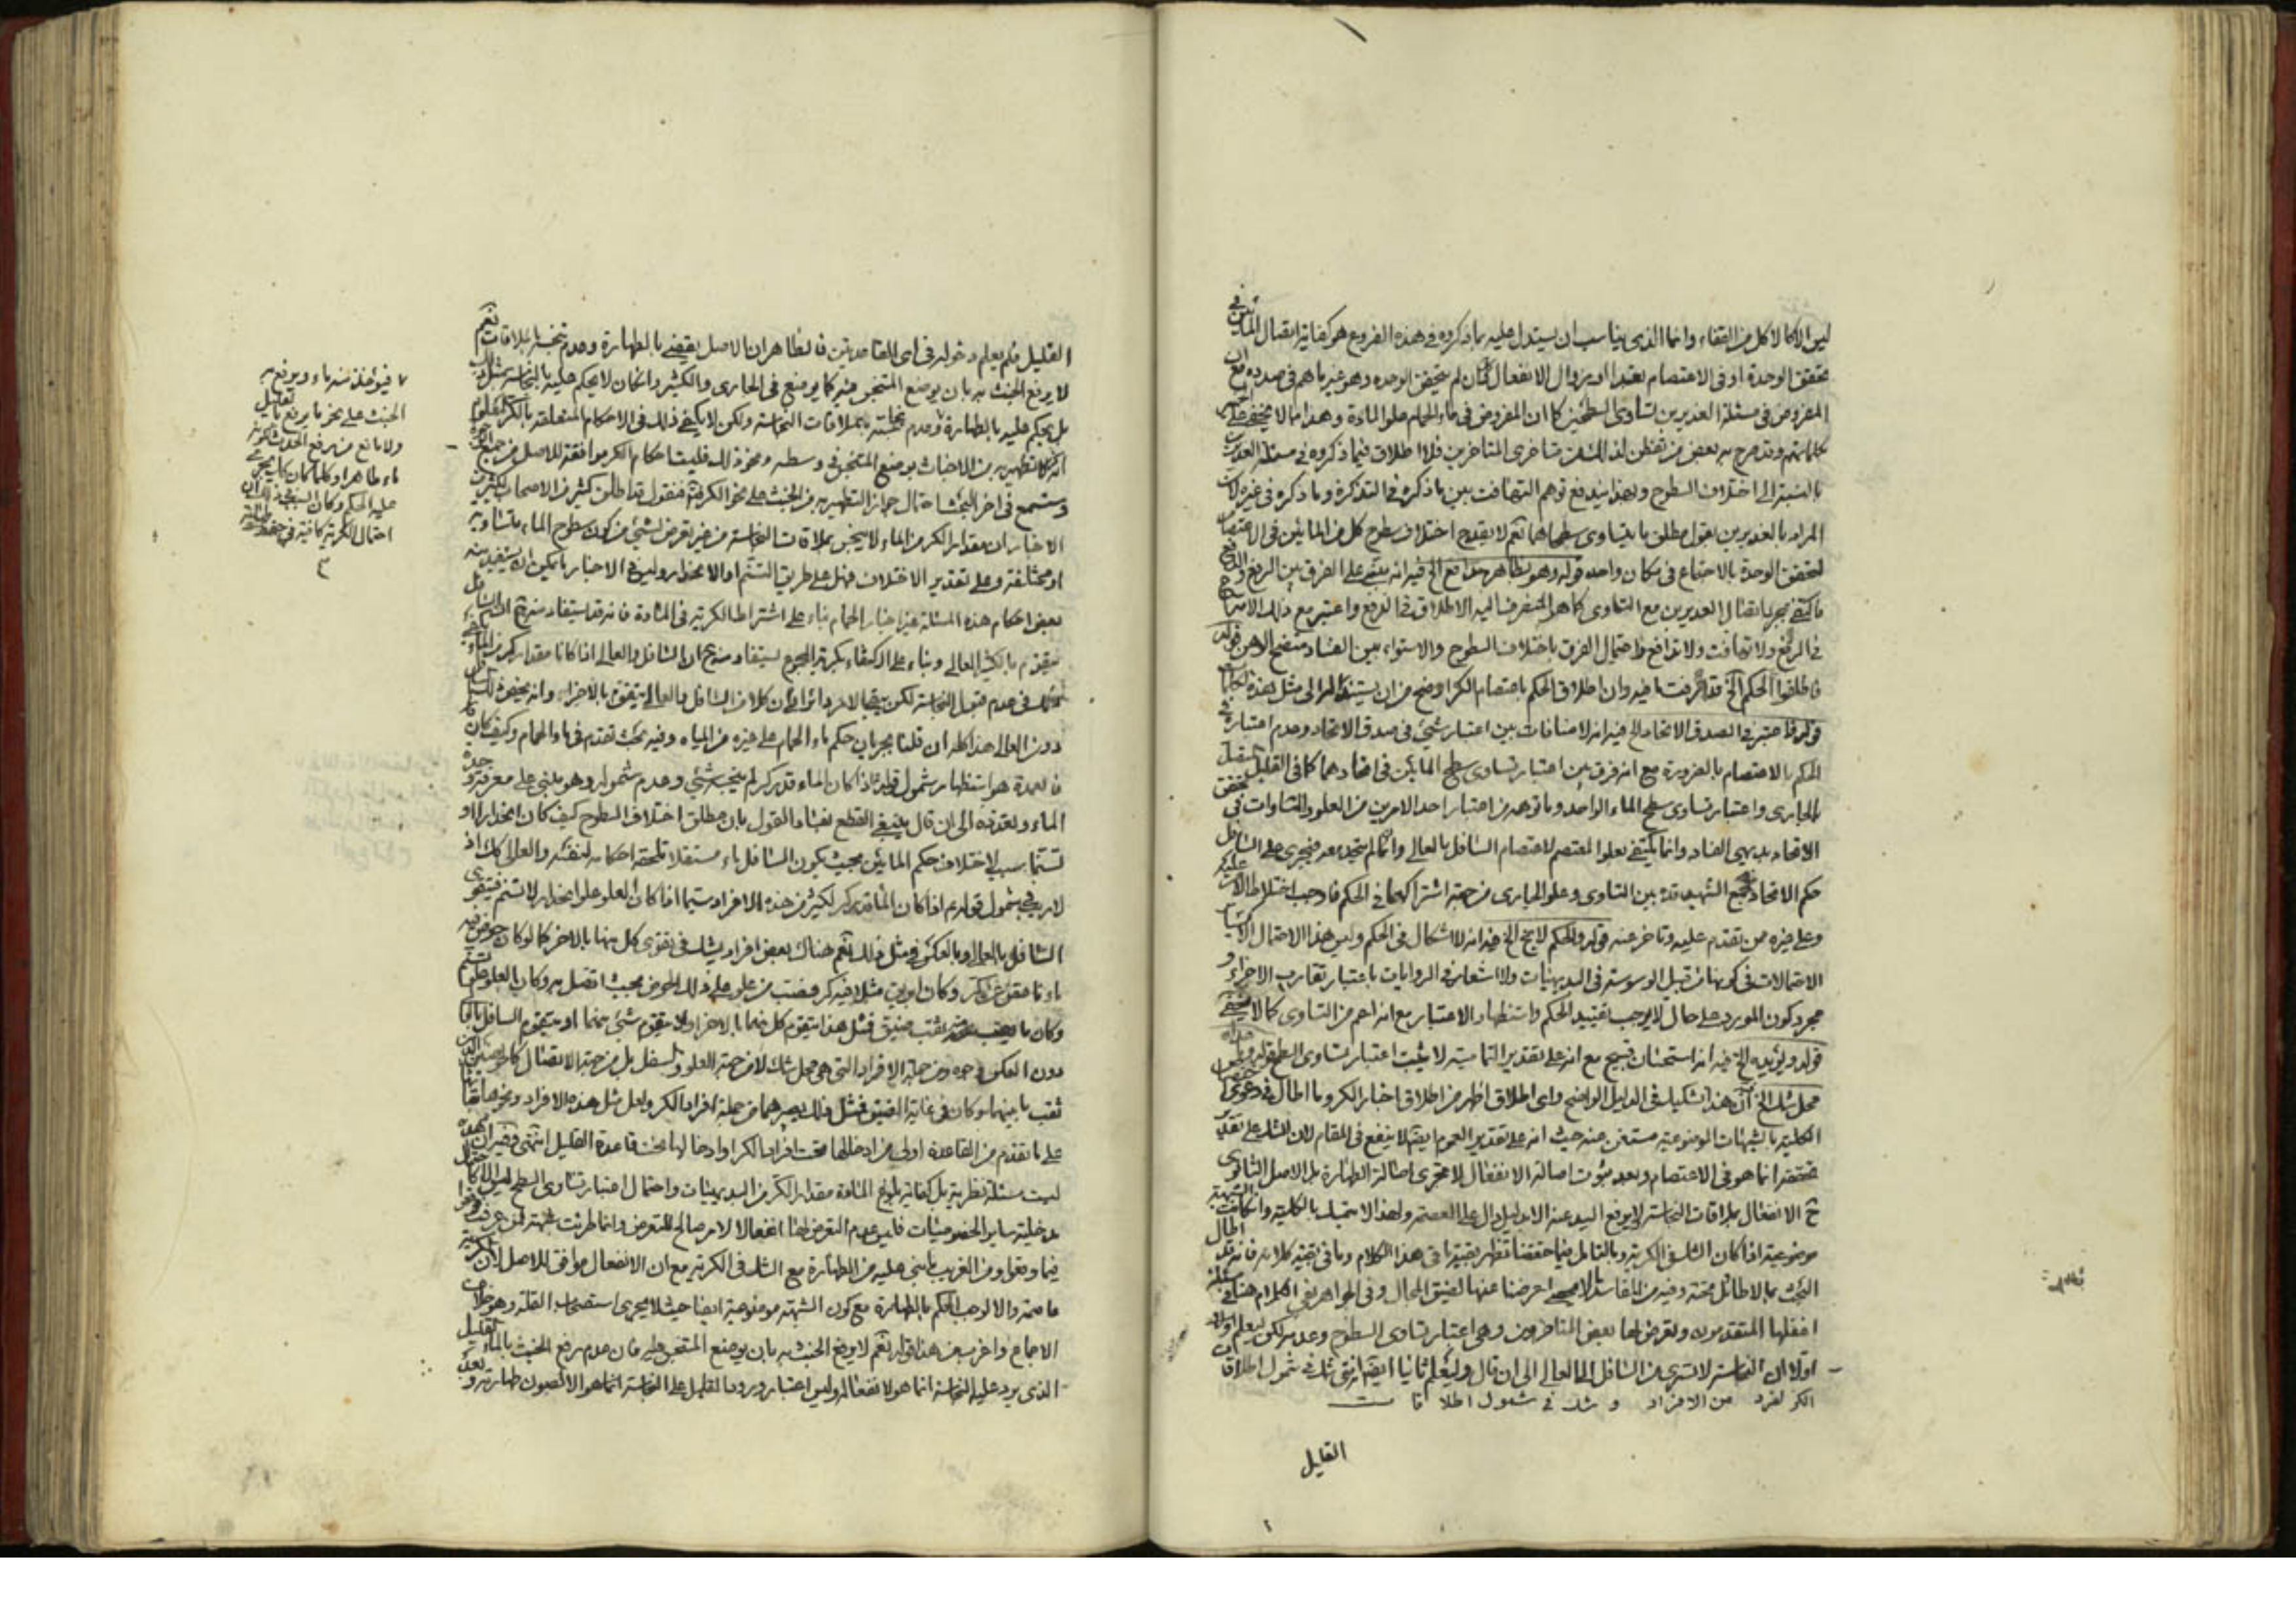 ليس الا كالاكل من القفاء وانما الذى يناسب ان يستدل عليه بما ذكروه فى هذه الفروع هو كفاية اتصال المائين فى
تحقق الوحدة او فى الاعتصام تعبدا او يزوال الانفعال وان لم يتحقق الوحده وهو غير ما هم فى صدده مع ان
المفروض فى مسئلة الغديرين تساوى السطحين كما ان المفروض فى ماء الحمام علو المادة وهذا مما لا يخفى على
كلماتهم وقد صرح به بعض من تفطن لذلك من متاخرى المتاخرين فلا اطلاق فيما ذكروه فى مسئلة الغديرين
بالنسبة الى اختلاف السطوح وبهذا يندفع توهم التهافت بين ما ذكره فى التذكرة وما ذكره فى غيره لان
المراد بالغديرين بقول مطلق ما يتساوى سطحاهما نعم لا يقدح اختلاف سطوح كل من المائين فى الاعتصام
لتحقق الوحدة بالاجتماع فى مكان واحد قوله وهو بظاهره تدافع الخ فيه انه يبتنى على الفرق بين الرفع والدفع
فاكتفى بمجرد اتصال الغديرين مع التساوى كما هو المنصرف اليه الاطلاق فى الدفع واعتبر مع ذلك الامتزاج
فى الرفع ولا تهافت ولا تدافع واحتمال الفرق باختلاف السطوح والاستواء بين الفساد متضح الوهن قوله
فاطلقوا الحكم الخ قد عرفت ما فيه وان اطلاق الحكم باعتصام الكر اوضح من ان يستند له الى مثل هذه الكلمات
قوله فاعتبر فى الصدق الاتحاد الخ فيه انه لا منافات بين اعتبار شئ فى صدق الاتحاد وعدم اعتباره فى
الحكم بالاعتصام بالضرورة مع انه فرق بين اعتبار تساوى سطح المائين فى اتحادهما كما فى القليل المتصل
بالجارى واعتبار تساوى سطح الماء الواحد وما توهمه من اعتبار احد الامرين من العلو والتساوات فى تحقق
الاتحاد بديهى الفساد وانما يكتفى بعلو المعتصم لاعتصام السافل بالعالى وان لم يتحد معه فيجرى على السافل
حكم الاتحاد فجمع الشهيد قده بين التساوى وعلو الجارى من جهة اشتراكهما فى الحكم فاوجب اختلاط الامر عليه
وعلى غيره ممن تقدم عليه وتاخر عنه قوله والحكم لا يخ الخ فيه انه لا اشكال فى الحكم وليس هذا الاحتمال الا كسائر
الاحتمالات فى كونها من قبيل الوسوسة فى البديهيات ولا اشعار فى الروايات باعتبار تقارب الاجزاء و
مجرد كون المورد على حال لا يوجب تقييد الحكم واستظهار الاعتبار مع انه اعم من التساوى كما لا يخفى
قوله ويؤيده الخ فيه انه استحسان قبيح مع انه على تقدير التمامية لا يثبت اعتبار تساوى السطح قوله
محل شك الخ ان هذا تشكيك فى الدليل الواضح واى اطلاق اظهر من اطلاق اخبار الكر وما اطال فى دعوى
الكلية بالشبهات الموضوعية مستغن عنه حيث انه على تقدير العموم ايضا لا ينفع فى المقام لان الشك على تقدير
تحققه انما هو فى الاعتصام وبعد ثبوت اصالة الانفعال لا مجرى اصالة الطهارة بل الاصل الثانوى
ح الانفعال بملاقات النجاسة لا يرفع اليد عنه الا بدليل دال على العصمة ولهذا لا يتمسك بالكلية وان كانت الشبهة
موضوعية اذا كان الشك فى الكرية وبالتامل فيما حققنا تظهر بقية ما فى هذا الكلام وما فى بقية كلامه فانه قد اطال
البحث بما لا طائل تحته وفيه من المفاسد ما لا يحصى اعرضنا عنها لضيق المجال وفى الجواهر بقى الكلام هنا فى مسئلة
اغفلها المتقدمون وتعرض لها بعض المتاخرين وهى اعتبار تساوى السطوح وعدمه لكن ليعلم اولا
اولا ان النجاسة لا تسرى من السافل الى العالى الى ان قال وليعلم ثانيا ايضا انه متى شك فى شمول اطلاقات
الكر لفرد من الافراد و شك فى شمول اطلا قا ت
القليل
القليل فلم يعلم دخوله فى اى القاعدتين فالظاهر ان الاصل يقضى بالطهارة وعدم تنجسه بملاقات نعم
لا يرفع الخبث به بان يوضع المتنجس فيه كما يوضع فى الجارى والكثير وان كان لا يحكم عليه بالنجاسة بمثل ذلك
بل يحكم عليه بالطهارة وعدم نجاسته بملاقات النجاسة ولكن لا يكفى ذلك فى الاحكام المتعلقة بالكر المعلوم
انه كر كالتطهير به من الاخباث بوضع المتنجس فى وسطه ونحو ذلك فليست احكام الكر موافقة للاصل من جميع
وستسمع فى اخر البحث احتمال جواز التطهير به من الخبث على نحو الكر فنقول قد اطلق كثير من الاصحاب ككثير من
الاخبار ان مقدار الكر من الماء لا ينجس بملاقات النجاسة من غير تعرض لشئ من كون سطوح الماء متساوية
او مختلفة وعلى تقدير الاختلاف فهل على طريق التسنم او الانحدار وليس فى الاخبار ما يمكن ان يستفيد منه
بعض احكام هذه المسئلة غير اخبار الحمام بناء على اشتراط الكرية فى المادة فانه قد يستفاد منه ح ان السافل
يتقوم بالكثير العالى وبناء على الاكتفاء بكرية المجموع يستفاد منه ح ان السافل والعالى اذا كانا مقدار كر من الماء
كفى فى عدم قبول النجاسة لكن يبقى الامر دائرا بين ان كلا من السافل والعالى يتقوى بالاخر او انه يختص ذلك بالسافل
دون العالى هذا كله ان قلنا بجريان حكم ماء الحمام على غيره من المياه وفيه بحث تقدم فى ماء الحمام وكيف كان
فالعمدة هو استظهار شمول قوله ع اذا كان الماء قدر كر لم ينجسه شئ وعدم شموله وهو مبنى على معرفة وحدة
الماء وتعدده الى ان قال ينبغى القطع بفساد القول بان مطلق اختلاف السطوح كيف كان انحدارا او
تسنما سبب لاختلاف حكم المائين بحيث يكون السافل ماء مستقلا تلحقه احكامه لنفسه والعالى كك اذ
لا ريب فى شمول قوله ع اذا كان الماء قدر كر لكثير من هذه الافراد سيما اذا كان العلو علو انحدار لا تسنم فيتقوى
السافل بالعالى وبالعكس فى مثل ذلك نعم هناك بعض افراد يشك فى تقوى كل منها بالاخر كما لو كان حوض فيه
ماء ناقص عن كر وكان ابريق مثلا فيه كر فصب من علو على ذلك الحوض بحيث اتصل به وكان العلو علو تسنم
دون العكس وجوه ومن جملة الافراد التى هى محل شك لا من جهة العلو والسفل بل من جهة الاتصال كالحوضين
ثقب ما بينهما وكان فى غاية الضيق فمثل ذلك يصيرهما من جملة افراد الكر ولعل مثل هذه الافراد ونحوها بناء
على ما تقدم من القاعدة اولى من ادخالها تحت افراد الكر او ادخالها تحت قاعدة القليل انتهى وفيه ان هذه
ليست مسئلة نظرية بل كفاية بلوغ المادة مقدار الكر من البديهيات واحتمال اعتبار تساوى السطح
مدخلية ساير الخصوصيات فليس عدم التعرض لها اغفالا لامر صالح للتعرض وانما طرئت شبهة لمن عرفت
فيما وقعوا ومن الغريب ما بنى عليه من الطهارة مع الشك فى الكرية مع ان الانفعال موافق للاصل لان الكرية
عاصمة والا لوجب الحكم بالطهارة مع كون الشبهة موضوعية ايضا حيث لا يجرى استصحاب القلة وهو خلاف
الاجماع واغرب من هذا قوله نعم لا يرفع الخبث به بان يوضع المتنجس فيه فان عدم رفع الخبث بالماء القليل
الذى يرد عليه النجاسة انما هو لانفعاله وليس اعتبار ورود القليل على النجاسة انما هو الا لصون طهارته وبعد
فيؤخذ منه ماء ويرفع به
الخبث على نحو ما يرفع بالقليل
ولا مانع من رفع الحدث لكونه
ماء طاهرا وكلما كان كك يجرى
عليه الحكم وكان السبب فى ذلك ان
احتمال الكرية كافية فى حفظ طهارته